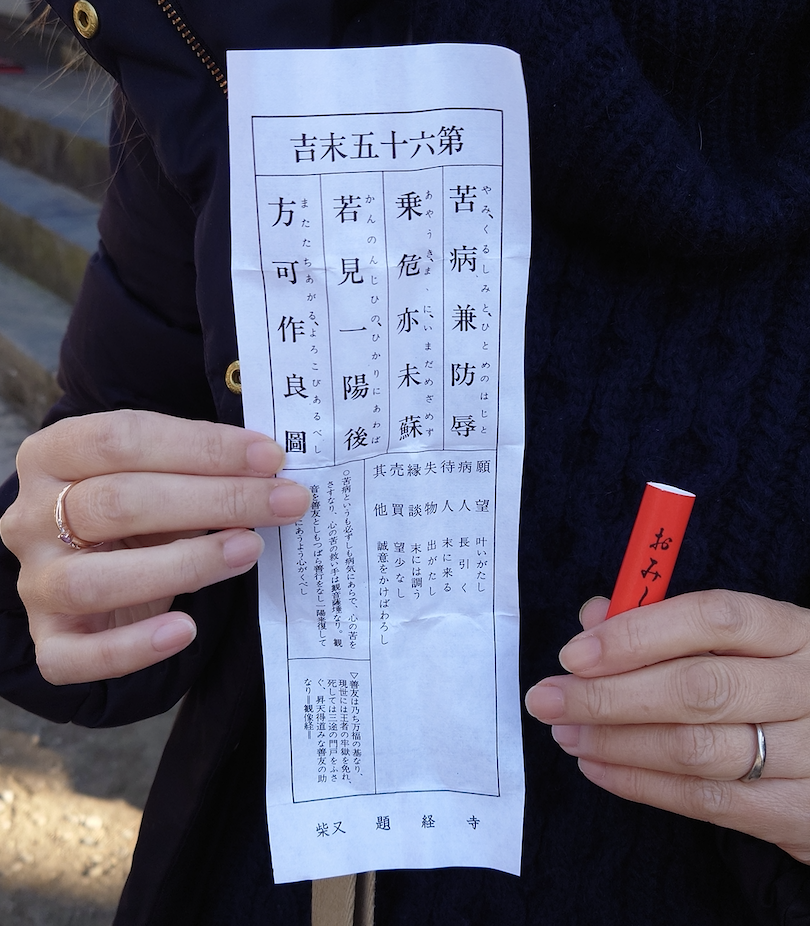 第六十五末吉
苦病兼防辱
やみ、くるしみと、ひとめのはじと
乗危亦未蘇
あやうきま、に、いまだめざめず
若見一陽後
かんのんじひの、ひかりにあわば
方可作良圖
またたちあがる、よろこびあるべし
願望 叶いがたし
病人 長引く
待人 末に来る
失物 出がたし
縁談 末には調う
売買 望少なし
其他 誠意をかけばわろし
○苦病というも必ずしも病気にあらで、心の苦を
さすなり、心の苦の救い手は観音薩埵なり。観
音を善友としもつぱら善行をなし一陽来復して
にあうよう心がくべし
▽善友は乃ち万福の基なり、
現世には王者の牢獄を免れ、
死しては三途の門戸をふさ
ぐ、昇天得道みな善友の助
なり＝観像経＝
柴又 題経寺
おみ